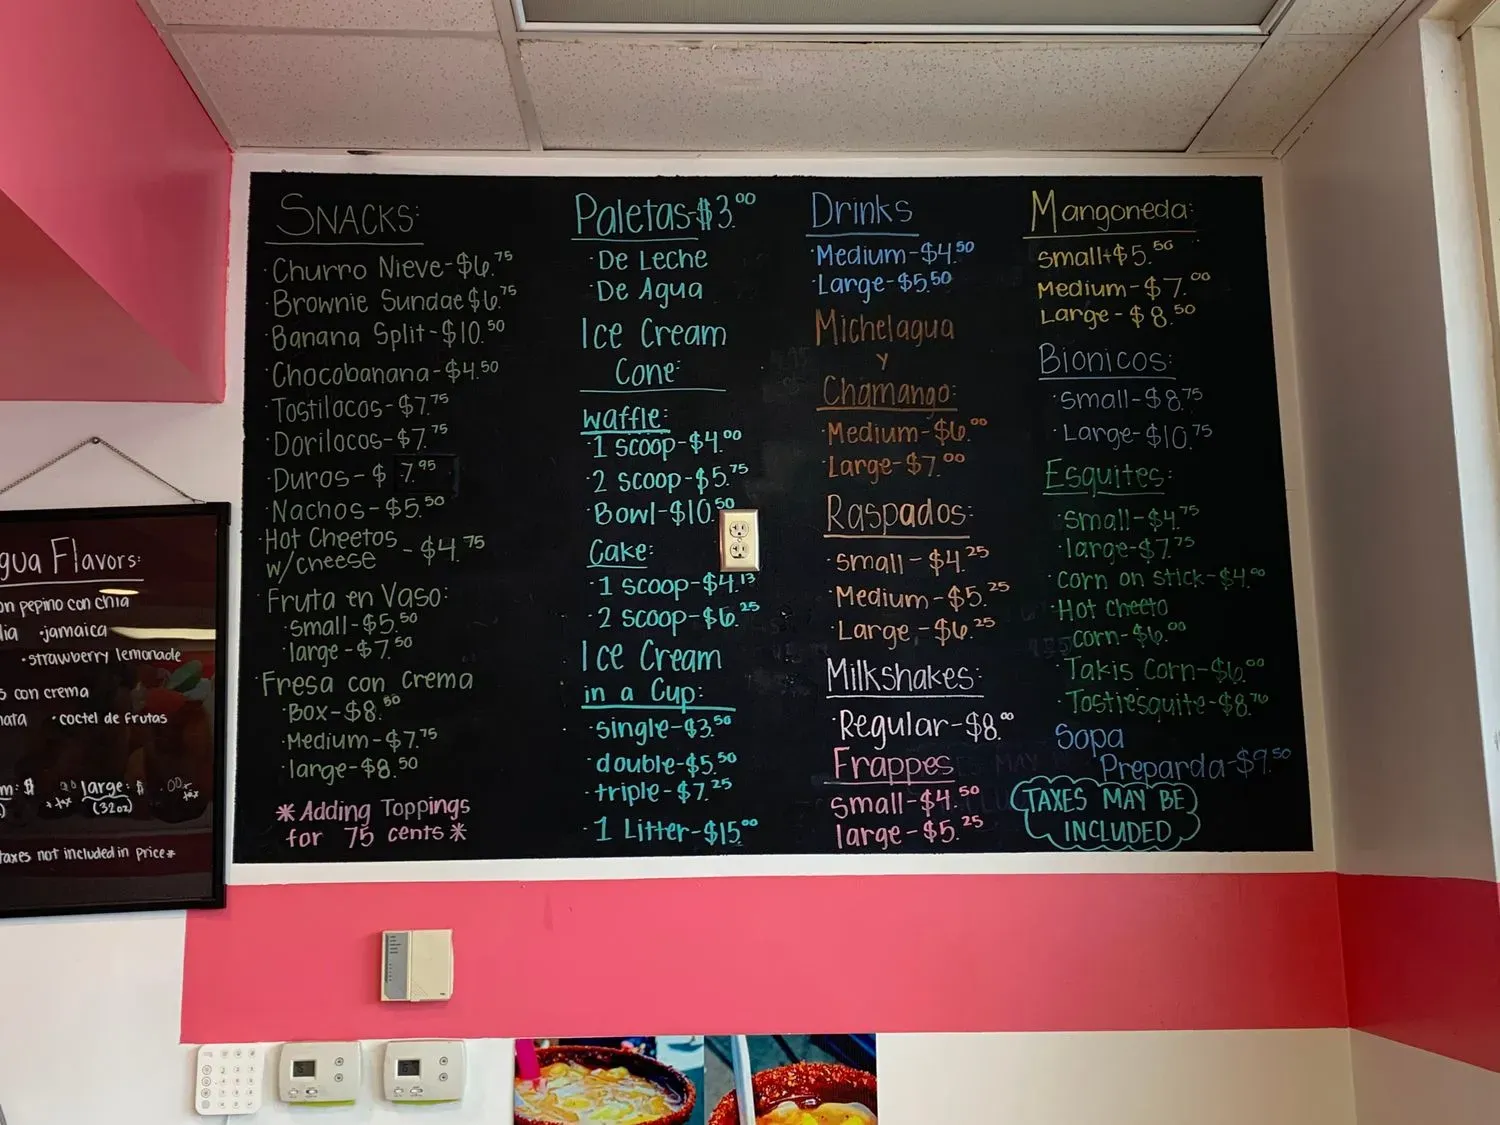 SNACKS:
·Churro Nieve-$6.75
·Brownie Sundae $6.75
·Banana Split-$10.50
·Chocobanana-$4.50
·Tostilocos-$7.75
·Dorilocos-$7.75
·Duros-$ 7.95
·Nachos-$5.50
·Hot Cheetos
w/cheese -$4.75
·Fruta en Vaso:
·small-$5.50
·large-$7.50
·Fresa con Crema
·Box-$8.50
·Medium-$7.75
·large-$8.50
*Adding Toppings
for 75 cents*
Paletas-$3.00
·De Leche
·De Agua
Ice Cream
Cone:
waffle:
·1 scoop-$4.00
·2 scoop-$5.75
·Bowl-$10.50
Cake:
·1 scoop-$4.13
·2 scoop-$6.25
Ice Cream
in a Cup:
·single-$3.50
·double-$5.50
·triple-$7.25
·1 Litter-$15.00
Drinks
·Medium-$4.50
·Large-$5.50
Michelagua
y
Chamango:
·Medium-$6.00
·Large-$7.00
Raspados:
·small-$4.25
·Medium-$5.25
·Large-$6.25
Milkshakes:
·Regular-$8.00
Frappes
small-$4.50
large-$5.25
Mangoneda:
small-$5.50
Medium-$7.00
Large-$8.50
Bionicos:
·small-$8.75
·Large-$10.75
Esquites:
·small-$4.75
·large-$7.75
·corn on stick-$4.00
·Hot cheeto
corn-$6.00
·Takis Corn-$6.00
·Tostiesquite-$8.76
Sopa
Preparda-$9.50
TAXES MAY BE
INCLUDED
gua Flavors:
on pepino con chia
·jamaica
·strawberry lemonade
s con crema
·coctel de frutas
m: $ large: $ .00
+tax (32oz) +tax
taxes not included in price*